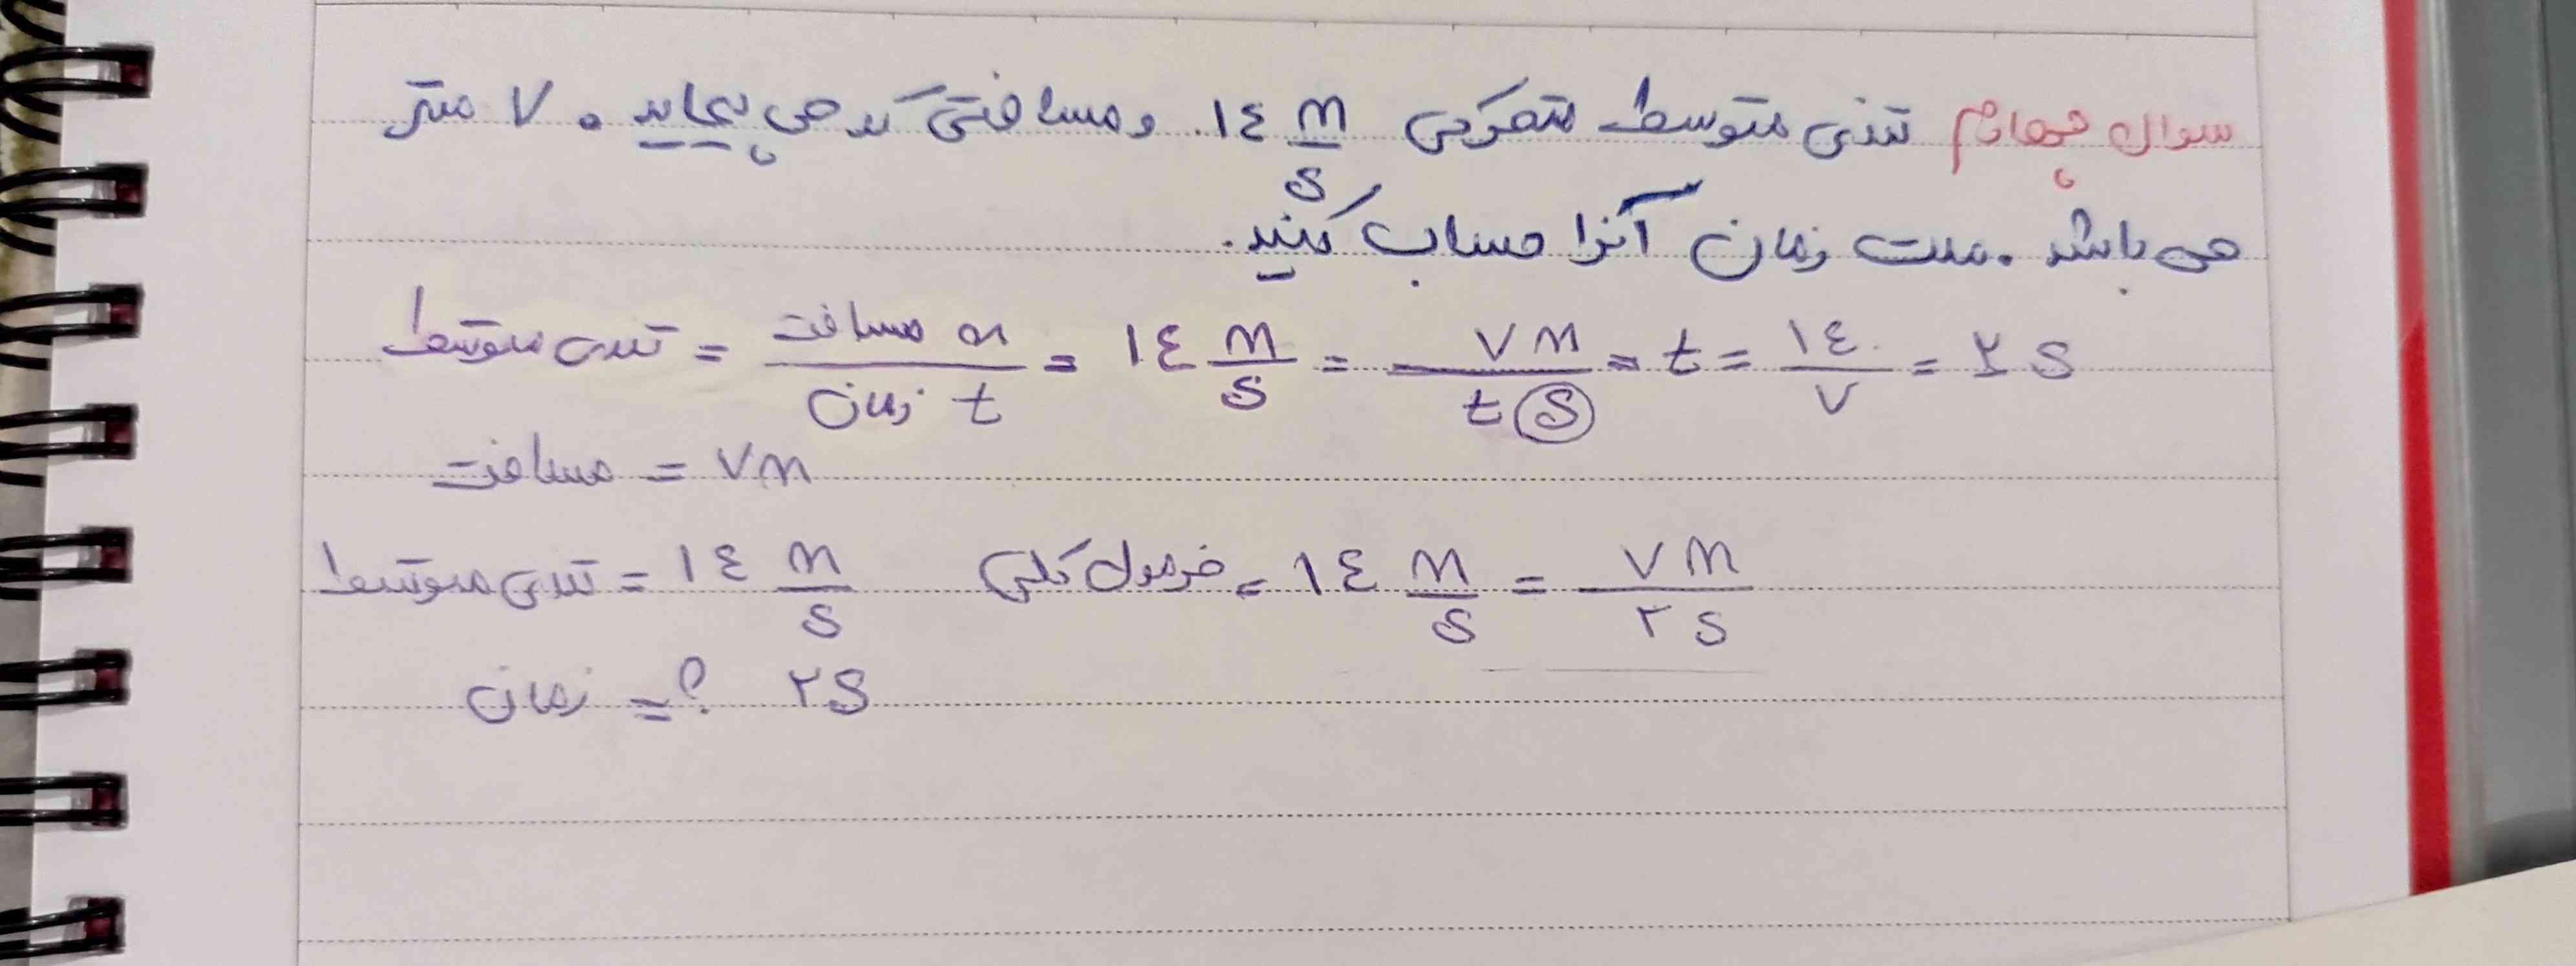 سوال چهارم تندی متوسط متحرکی ١٤ m/s و مسافتی که می پیماید ٧ متر
می باشد. مدت زمان آنرا حساب کنید.
تندی متوسط = مسافت m / زمان t = ١٤ m/s = ٧ m / t s = t = ١٤ / ٧ = ٢ s
مسافت = ٧ m
تندی متوسط = ١٤ m/s فرمول کلی = ١٤ m/s = ٧ m / ٢ s
زمان = ؟ ٢ s